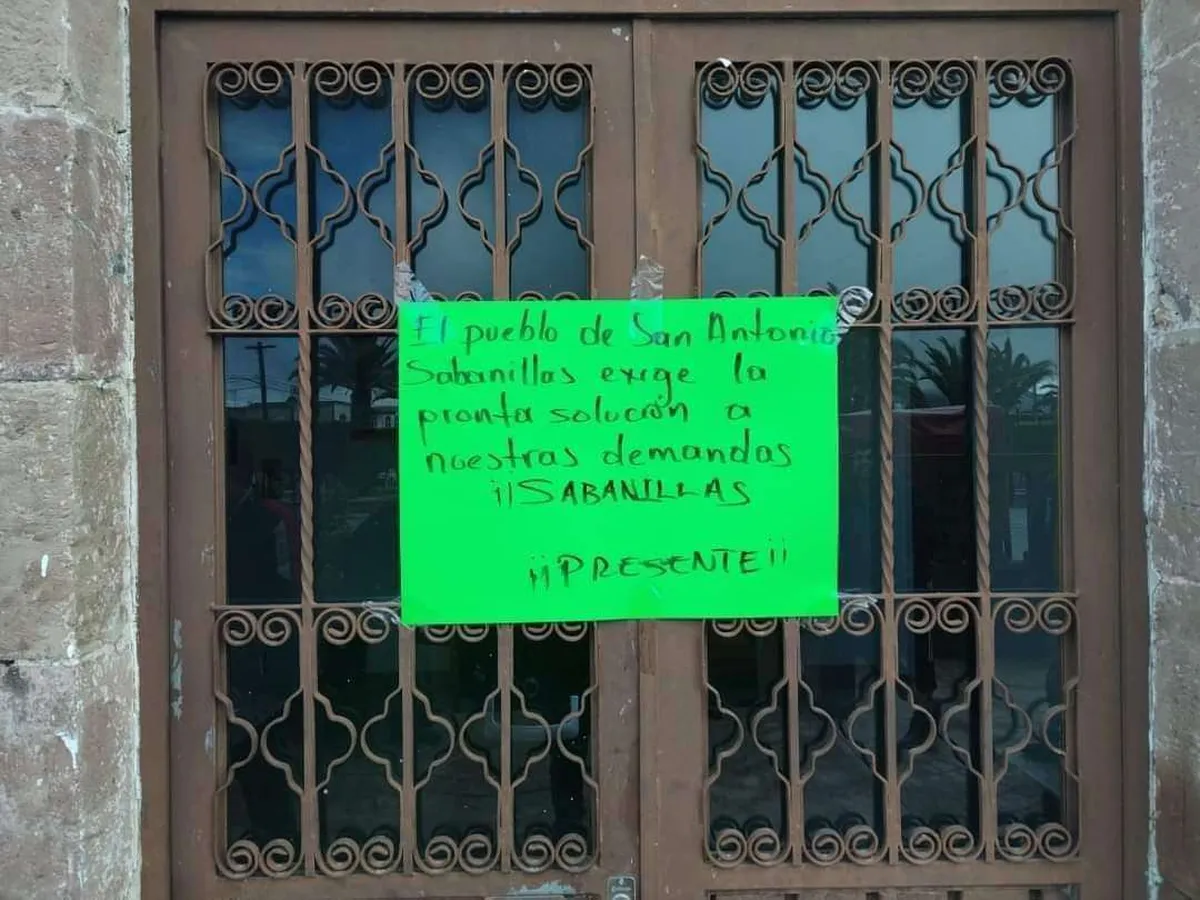 El pueblo de San Antonio
Sabanillas exige la
pronta solución a
nuestras demandas
¡¡SABANILLAS
¡¡PRESENTE¡¡